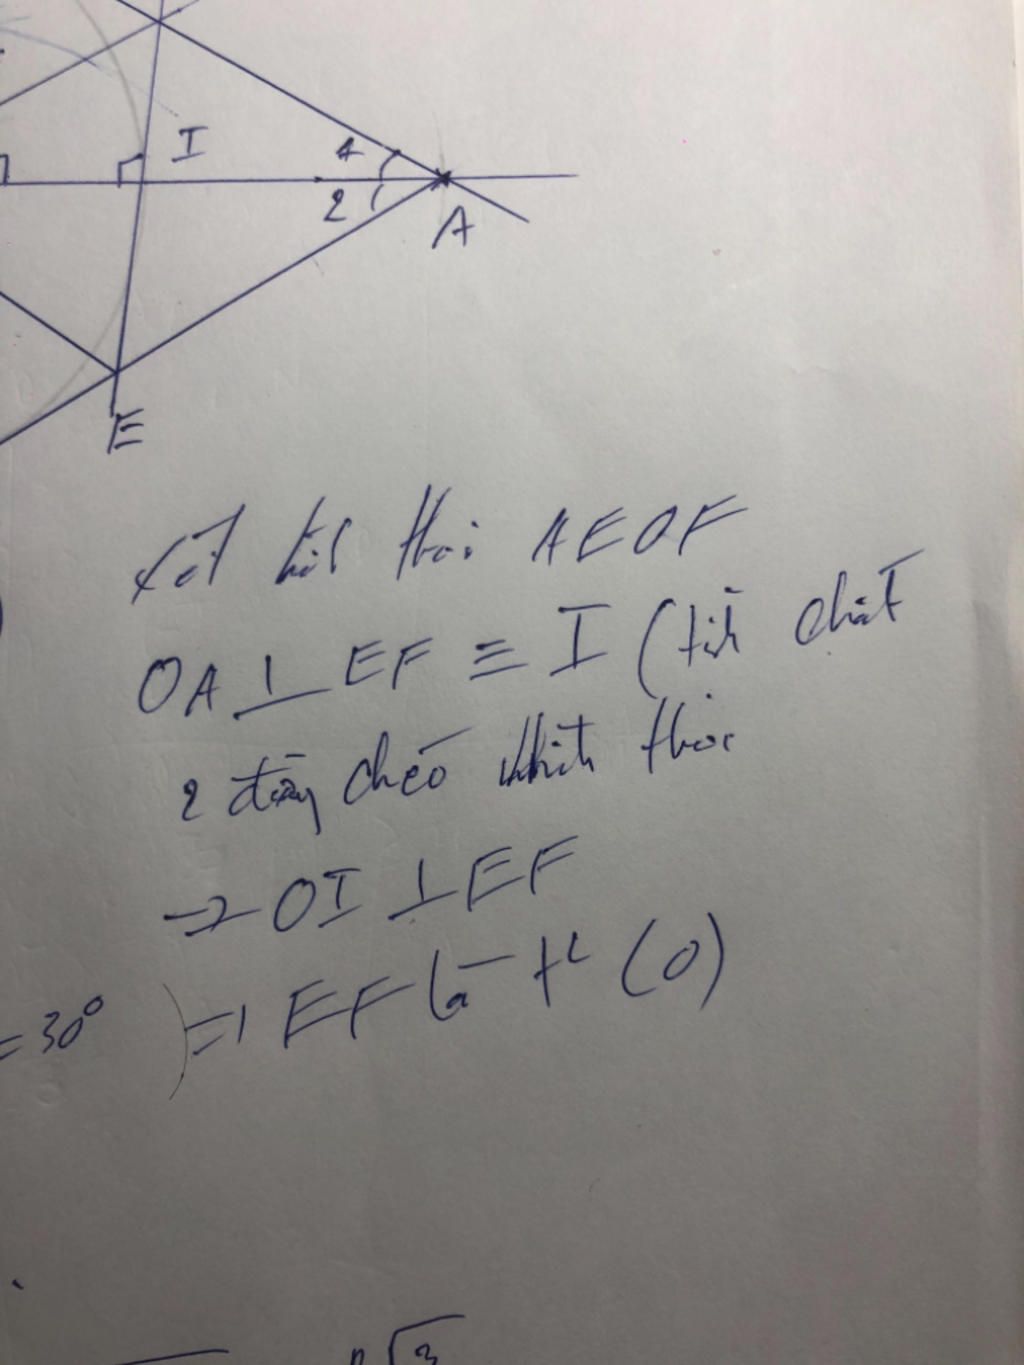 I
1
2
A
E
Xét hình thoi AEOF
OA ⊥ EF ≡ I (tính chất
2 đường chéo hình thoi
→ OI ⊥ EF
= 30° ) => EF là t² (O)
√3